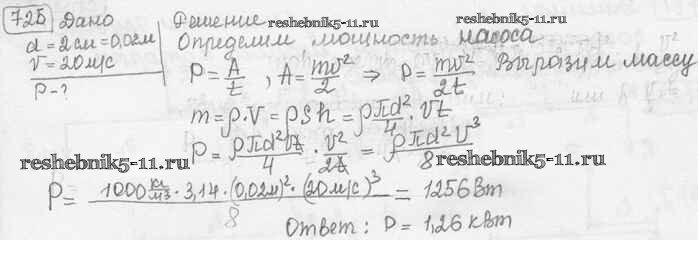 725 Дано
d = 2 см = 0,02 м
v = 20 м/с
P - ?
Решение
reshebnik5-11.ru
reshebnik5-11.ru
Определим мощность насоса
P = A/t , A = mv²/2 ⇒ P = mv²/2t Выразим массу
m = ρ·V = ρSh = ρ πd²/4 · vt
P = ρπd²vt/4 · v²/2t = ρ πd²v³/8
reshebnik5-11.ru
reshebnik5-11.ru
P = 1000 кг/м³ · 3,14 · (0,02м)² · (20 м/с)³ / 8 = 1256 Вт
Ответ: P = 1,26 кВт